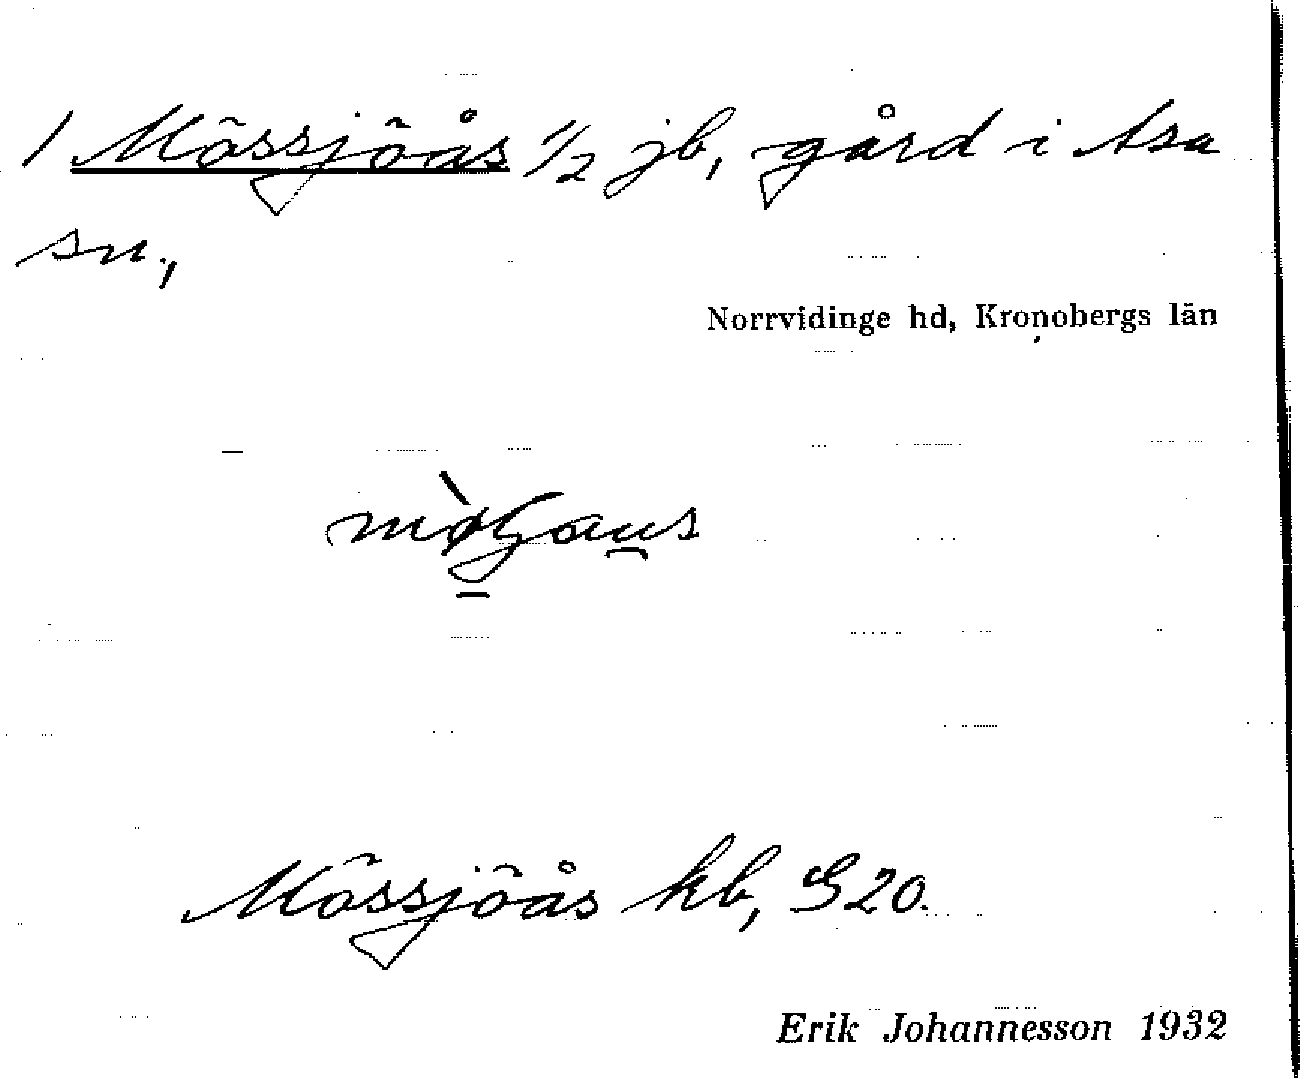 1 Mössjöås 1/2 jb, gård i Asa
sn.,
Norrvidinge hd, Kronobergs län
Mössjöås kb, G20.
Erik Johannesson 1932